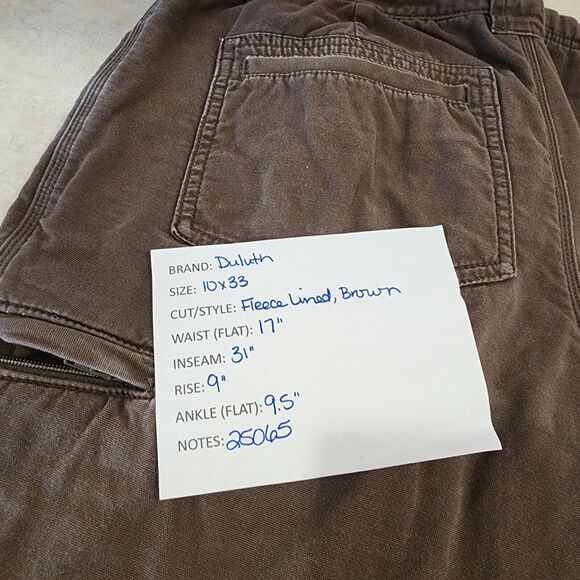 BRAND: Duluth
SIZE: 10x33
CUT/STYLE: Fleece Lined, Brown
WAIST (FLAT): 17"
INSEAM: 31"
RISE: 9"
ANKLE (FLAT): 9.5"
NOTES: 25065